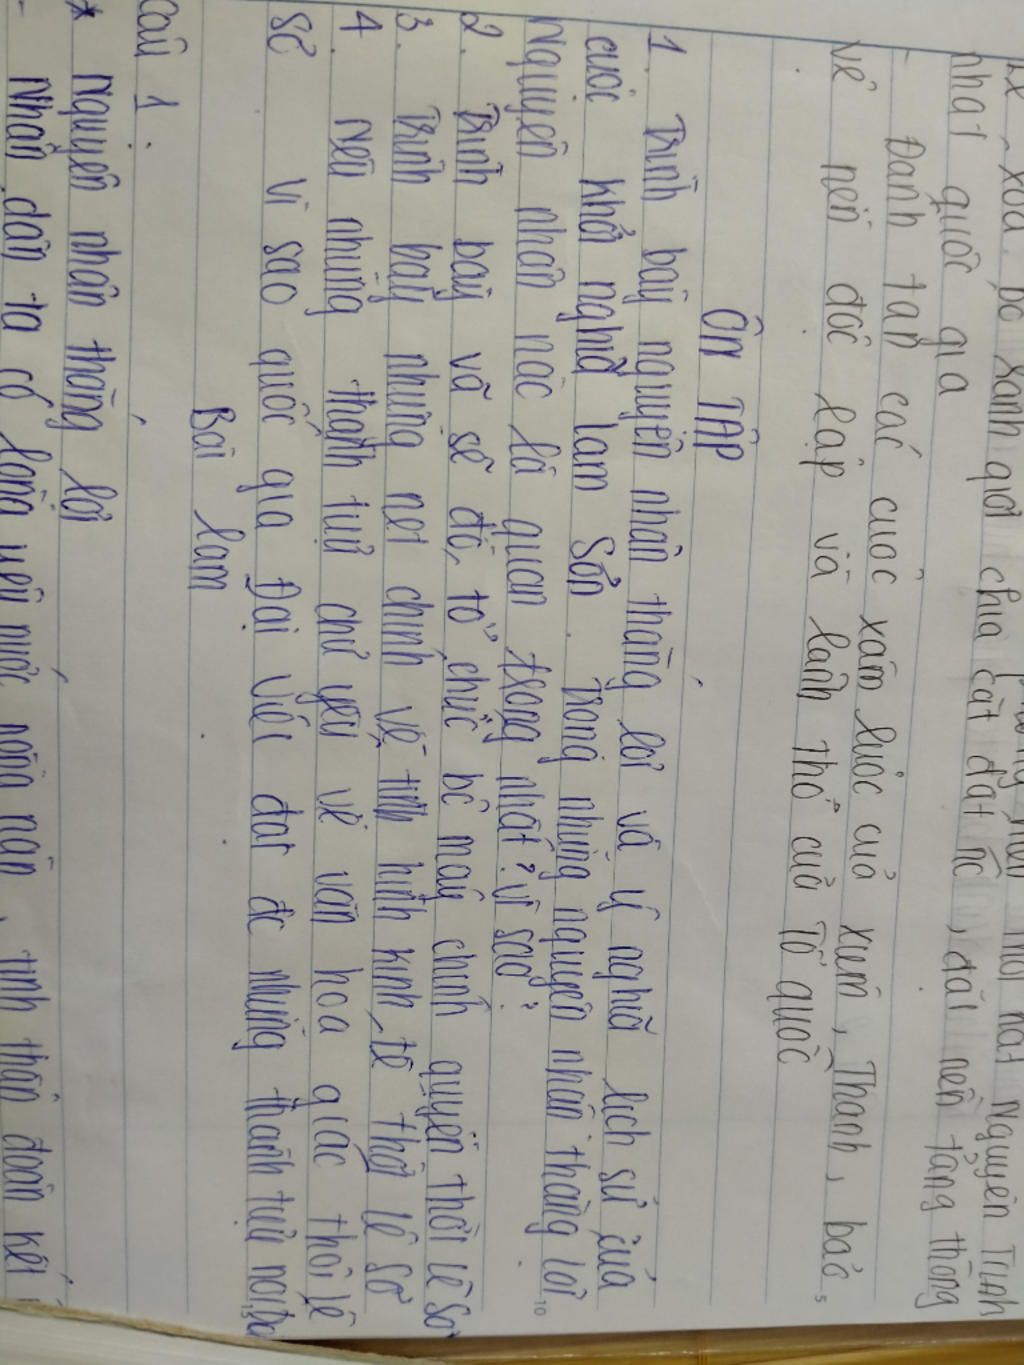 xóa bỏ ranh giới chia cắt đất nc, đặt nền tảng thống
nhất quốc gia
- Đánh tan các cuộc xâm lược của xiêm, Thanh, bảo
vệ nền độc lập và lãnh thổ của Tổ quốc
ÔN TẬP
1. Trình bày nguyên nhân thắng lợi và ý nghĩa lịch sử của
cuộc khởi nghĩa lam Sơn. Trong những nguyên nhân thắng lợi
Nguyên nhân nào là quan trọng nhất? Vì sao?
2. Trình bày và sẽ đồ, tổ chức bộ máy chính quyền thời lê Sơ
3. Trình bày những nét chính về tình hình kinh tế thời lê sơ
4. Nêu những thành tựu chủ yếu về văn hóa giáo thời lê
sơ Vì sao quốc gia Đại Việt đạt đc những thành tựu nói
Bài làm
câu 1:
* Nguyên nhân thắng lợi
- Nhân dân ta có lòng yêu nước nồng nàn, tinh thần đoàn kết